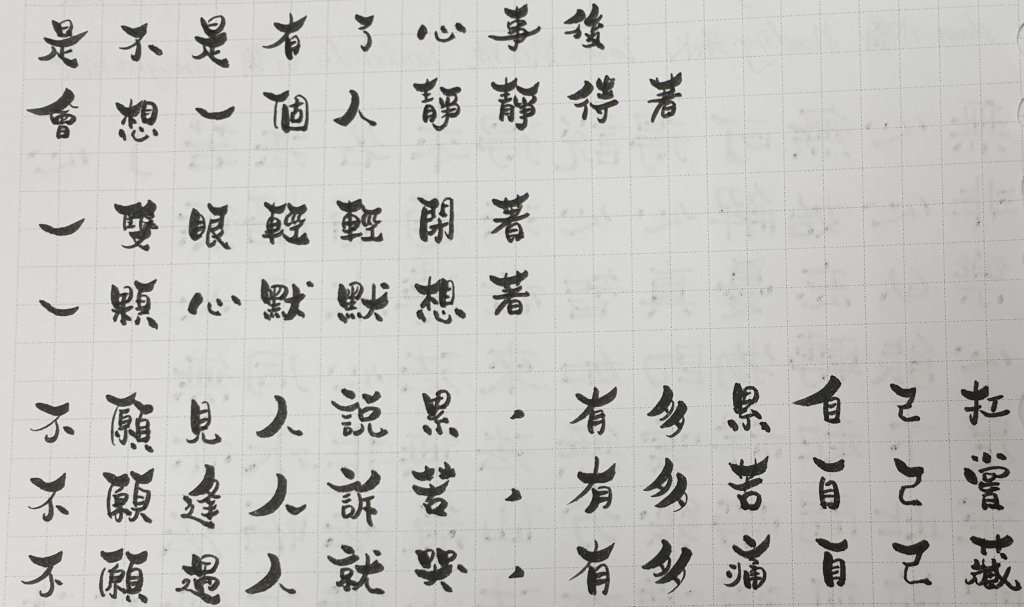 是不是有了心事後
會想一個人靜靜待著
一雙眼輕輕閉著
一顆心默默想著
不願見人說累,有多累自己扛
不願逢人訴苦,有多苦自己嘗
不願遇人就哭,有多痛自己藏